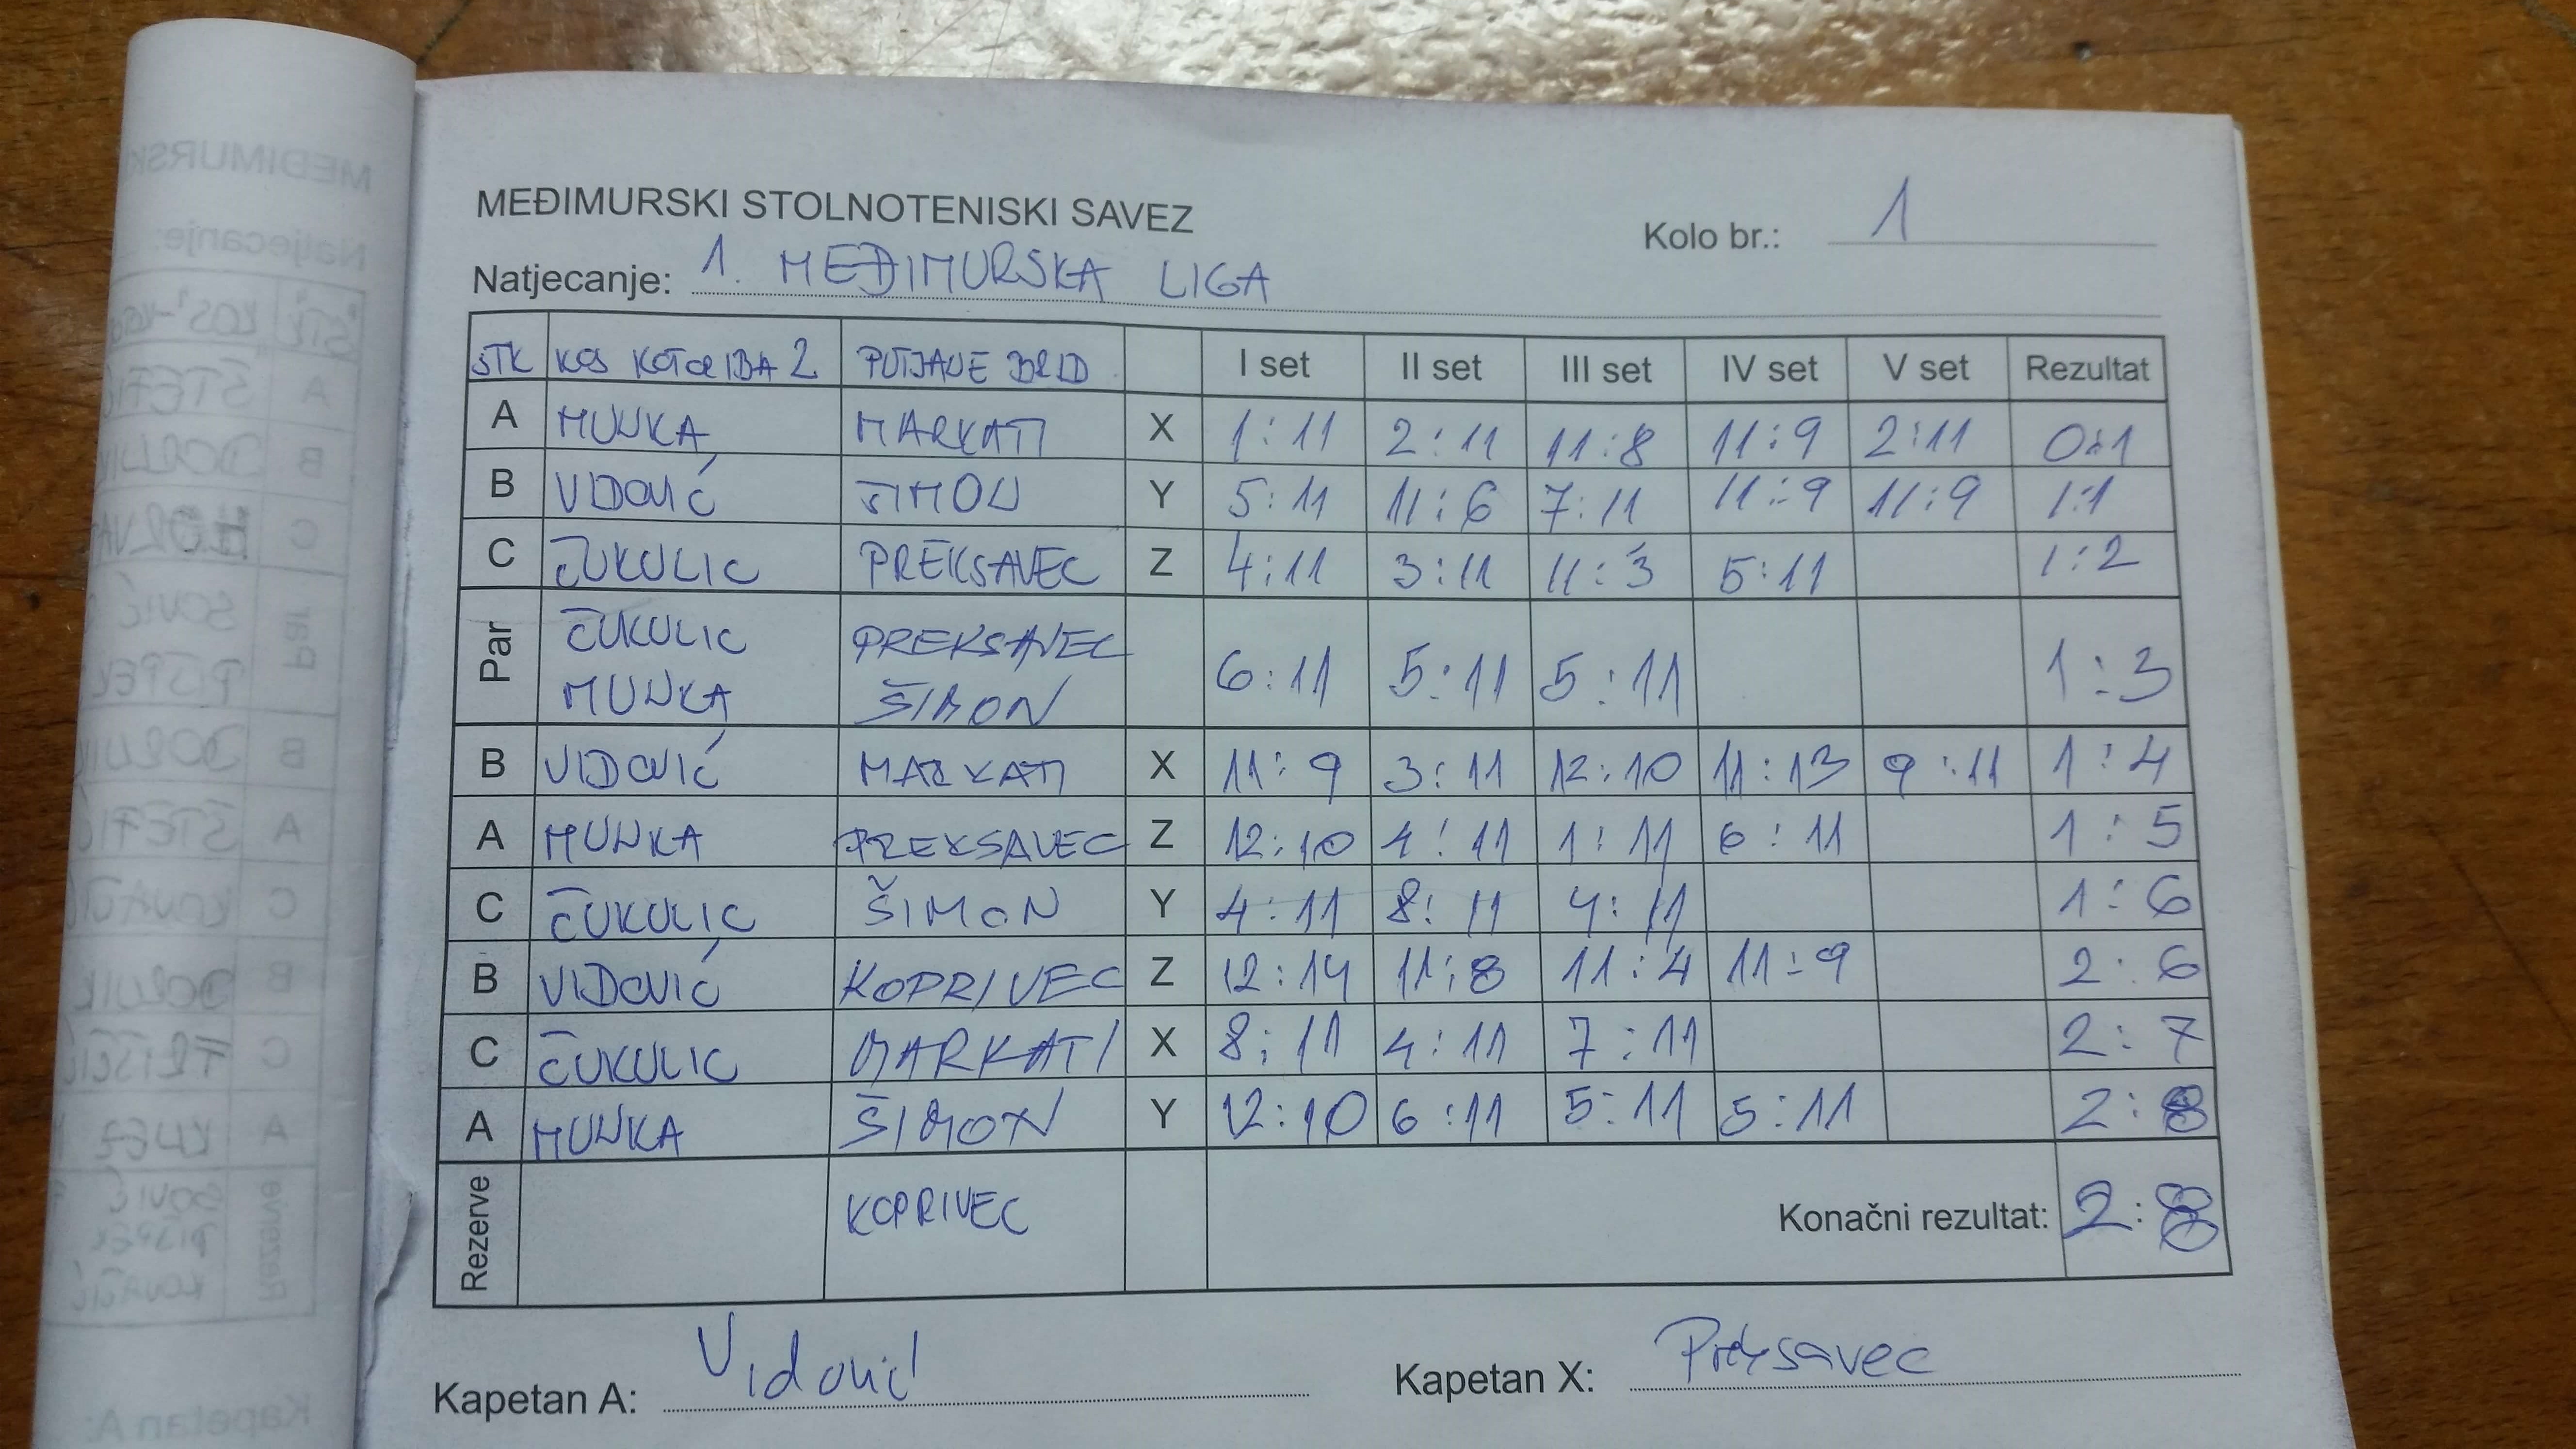 MEĐIMURSKI STOLNOTENISKI SAVEZ
Kolo br.: 1
Natjecanje: 1. MEĐIMURSKA LIGA
STK KOS KOTORIBA 2 PUTJANE BRID I set II set III set IV set V set Rezultat
A MUNKA MARKATI X 1:11 2:11 11:8 11:9 2:11 0:1
B VIDOVIĆ ŠIMON Y 5:11 11:6 7:11 11:9 11:9 1:1
C ČUKULIC PREKSAVEC Z 4:11 3:11 11:3 5:11 1:2
Par ČUKULIC MUNKA PREKSAVEC ŠIMON 6:11 5:11 5:11 1:3
B VIDOVIĆ MARKATI X 11:9 3:11 12:10 11:13 9:11 1:4
A MUNKA PREKSAVEC Z 12:10 4:11 1:11 6:11 1:5
C ČUKULIC ŠIMON Y 4:11 8:11 4:11 1:6
B VIDOVIĆ KOPRIVEC Z 12:14 11:8 11:4 11:9 2:6
C ČUKULIC MARKATI X 8:11 4:11 7:11 2:7
A MUNKA ŠIMON Y 12:10 6:11 5:11 5:11 2:8
Rezerve KOPRIVEC Konačni rezultat: 2:8
Kapetan A: Vidović Kapetan X: Preksavec